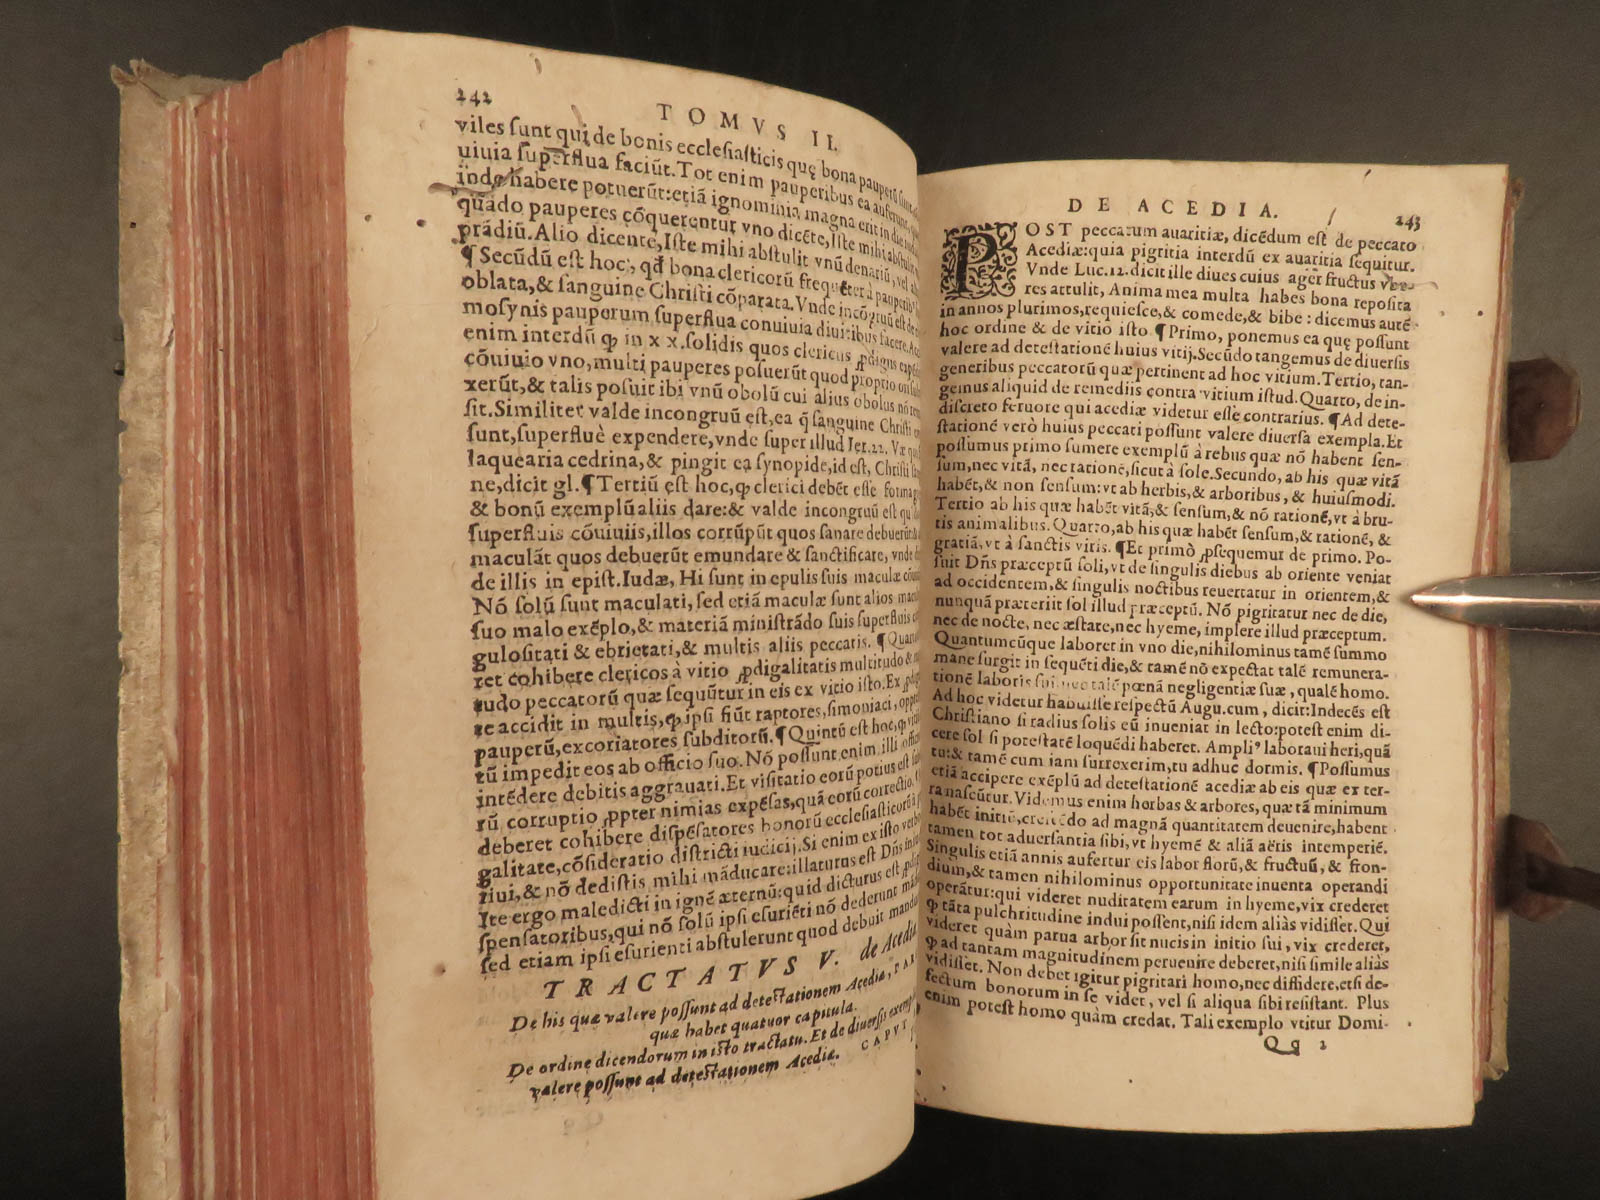 242
TOMVS II.
viles ſunt qui de bonis eccleſiaſticis quę bona pauperū ſunt
uiuia ſuperflua faciūt. Tot enim pauperibus ea auferunt,
inde habere potuerūt: etiā ignominia magna erit in die
quādo pauperes cōquerentur vno dicēte, Iſte mihi abſtulit
prādiū. Alio dicente, Iſte mihi abſtulit vnū denariū, vel
¶ Secūdū eſt hoc, qđ bona clericorū frequēter à pauperibus
oblata, & ſanguine Chriſti cōparata. Vnde incōgruū eſt de
moſynis pauperum ſuperflua conuiuia diuitibus facere.
enim interdū ꝙ in x x. ſolidis quos clericus ꝓdigus
cōuiuio vno, multi pauperes poſuerūt quod proprio ori
xerūt, & talis poſuit ibi vnū obolū cui alius obolus nō
ſit. Similiter valde incongruū eſt, ea q̄ ſanguine Chriſti
ſunt, ſuperfluè expendere, vnde ſuper illud Ier. 22. Væ
laquearia cedrina, & pingit ea ſynopide, id eſt, Chriſti
ne, dicit gl. ¶ Tertiū eſt hoc, ꝙ clerici debēt eſſe forma
& bonū exemplū aliis dare: & valde incongruū eſt
ſuperfluis cōuiuiis, illos corrūpūt quos ſanare debuerūt
maculāt quos debuerūt emundare & ſanctificare, vnde
de illis in epiſt. Iudæ, Hi ſunt in epulis ſuis maculæ
Nō ſolū ſunt maculati, ſed etiā maculæ ſunt alios
ſuo malo exēplo, & materiā miniſtrādo ſuis ſuperfluis
guloſitati & ebrietati, & multis aliis peccatis. ¶
ret cohibere clericos à vitio ꝓdigalitatis multitudo &
tudo peccatorū quæ ſequūtur in eis ex vitio iſto. Ex
te accidit in multis, ꝙ ipſi fiūt raptores, ſimoniaci,
pauperū, excoriatores ſubditorū. ¶ Quintū eſt hoc, ꝙ
tū impedit eos ab officio ſuo. Nō poſſunt enim illi
intēdere debitis aggrauati. Et viſitatio eorū potius eſt
rū corruptio ꝓpter nimias expēſas, quā eorū correctio.
deberet cohibere diſpēſatores bonorū eccleſiaſticorū à
galitate, cōſideratio diſtricti iudicij. Si enim ex iſto verbo
riui, & nō dediſtis mihi māducare: illaturus eſt Dn̄s
Ite ergo maledicti in ignē æternū: quid dicturus eſt
ſpenſatoribus, qui nō ſolū ipſi eſuriēti nō dederunt
ſed etiam ipſi eſurienti abſtulerunt quod debuit
TRACTATVS V. de Acedia
De his quæ valere poſſunt ad deteſtationem Acediæ,
quæ habet quatuor capitula.
De ordine dicendorum in iſto tractatu. Et de diuerſis
valere poſſunt ad deteſtationem Acediæ. CAPVT
DE ACEDIA.
243
POST peccatum auaritiæ, dicēdum eſt de peccato
Acediæ: quia pigritia interdū ex auaritia ſequitur.
Vnde Luc. 12. dicit ille diues cuius ager fructus vbe-
res attulit, Anima mea multa habes bona repoſita
in annos plurimos, requieſce, & comede, & bibe: dicemus autē
hoc ordine & de vitio iſto. ¶ Primo, ponemus ea quę poſſunt
valere ad deteſtationē huius vitij. Secūdo tangemus de diuerſis
generibus peccatorū quæ pertinent ad hoc vitium. Tertio, tan-
gemus aliquid de remediis contra vitium iſtud. Quarto, de in-
diſcreto feruore qui acediæ videtur eſſe contrarius. ¶ Ad dete-
ſtationē verò huius peccati poſſunt valere diuerſa exempla. Et
poſſumus primo ſumere exemplū à rebus quæ nō habent ſen-
ſum, nec vitā, nec rationē, ſicut à ſole. Secundo, ab his quæ vitā
habēt, & non ſenſum: vt ab herbis, & arboribus, & huiuſmodi.
Tertio ab his quæ habēt vitā, & ſenſum, & nō rationē, vt à bru-
tis animalibus. Quarto, ab his quæ habēt ſenſum, & rationē, &
gratiā, vt à ſanctis viris. ¶ Et primò ꝓſequemur de primo. Po-
ſuit Dn̄s præceptū ſoli, vt de ſingulis diebus ab oriente veniat
ad occidentem, & ſingulis noctibus reuertatur in orientem, &
nunquā præteriit ſol illud præceptū. Nō pigritatur nec de die,
nec de nocte, nec æſtate, nec hyeme, implere illud præceptum.
Quantumcūque laboret in vno die, nihilominus tamē ſummo
mane ſurgit in ſequēti die, & tamē nō expectat talē remunera-
tionē laboris ſui, nec talē pœnā negligentiæ ſuæ, qualē homo.
Ad hoc videtur habuiſſe reſpectū Augu. cum, dicit: Indecēs eſt
Chriſtiano ſi radius ſolis eū inueniat in lecto: poteſt enim di-
cere ſol ſi poteſtatē loquēdi haberet. Ampli⁹ laboraui heri, quā
tu: & tamē cum iam ſurrexerim, tu adhuc dormis. ¶ Poſſumus
etiā accipere exēplū ad deteſtationē acediæ ab eis quæ ex ter-
ra naſcūtur. Videmus enim herbas & arbores, quæ tā minimum
habēt initiū, creſcēdo ad magnā quantitatem deuenire, habent
tamen tot aduerſantia ſibi, vt hyemē & aliā aëris intemperiē.
Singulis etiā annis aufertur eis labor florū, & fructuū, & fron-
dium, & tamen nihilominus opportunitate inuenta operandi
operātur: qui videret nuditatem earum in hyeme, vix crederet
ꝙ tāta pulchritudine indui poſſent, niſi idem aliàs vidiſſet. Qui
videret quàm parua arbor ſit nucis in initio ſui, vix crederet,
ꝙ ad tantam magnitudinem peruenire deberet, niſi ſimile aliàs
vidiſſet. Non debet igitur pigritari homo, nec diffidere, etſi de-
fectum bonorum in ſe videt, vel ſi aliqua ſibi reſiſtant. Plus
enim poteſt homo quàm credat. Tali exemplo vtitur Domi-
Qq 2